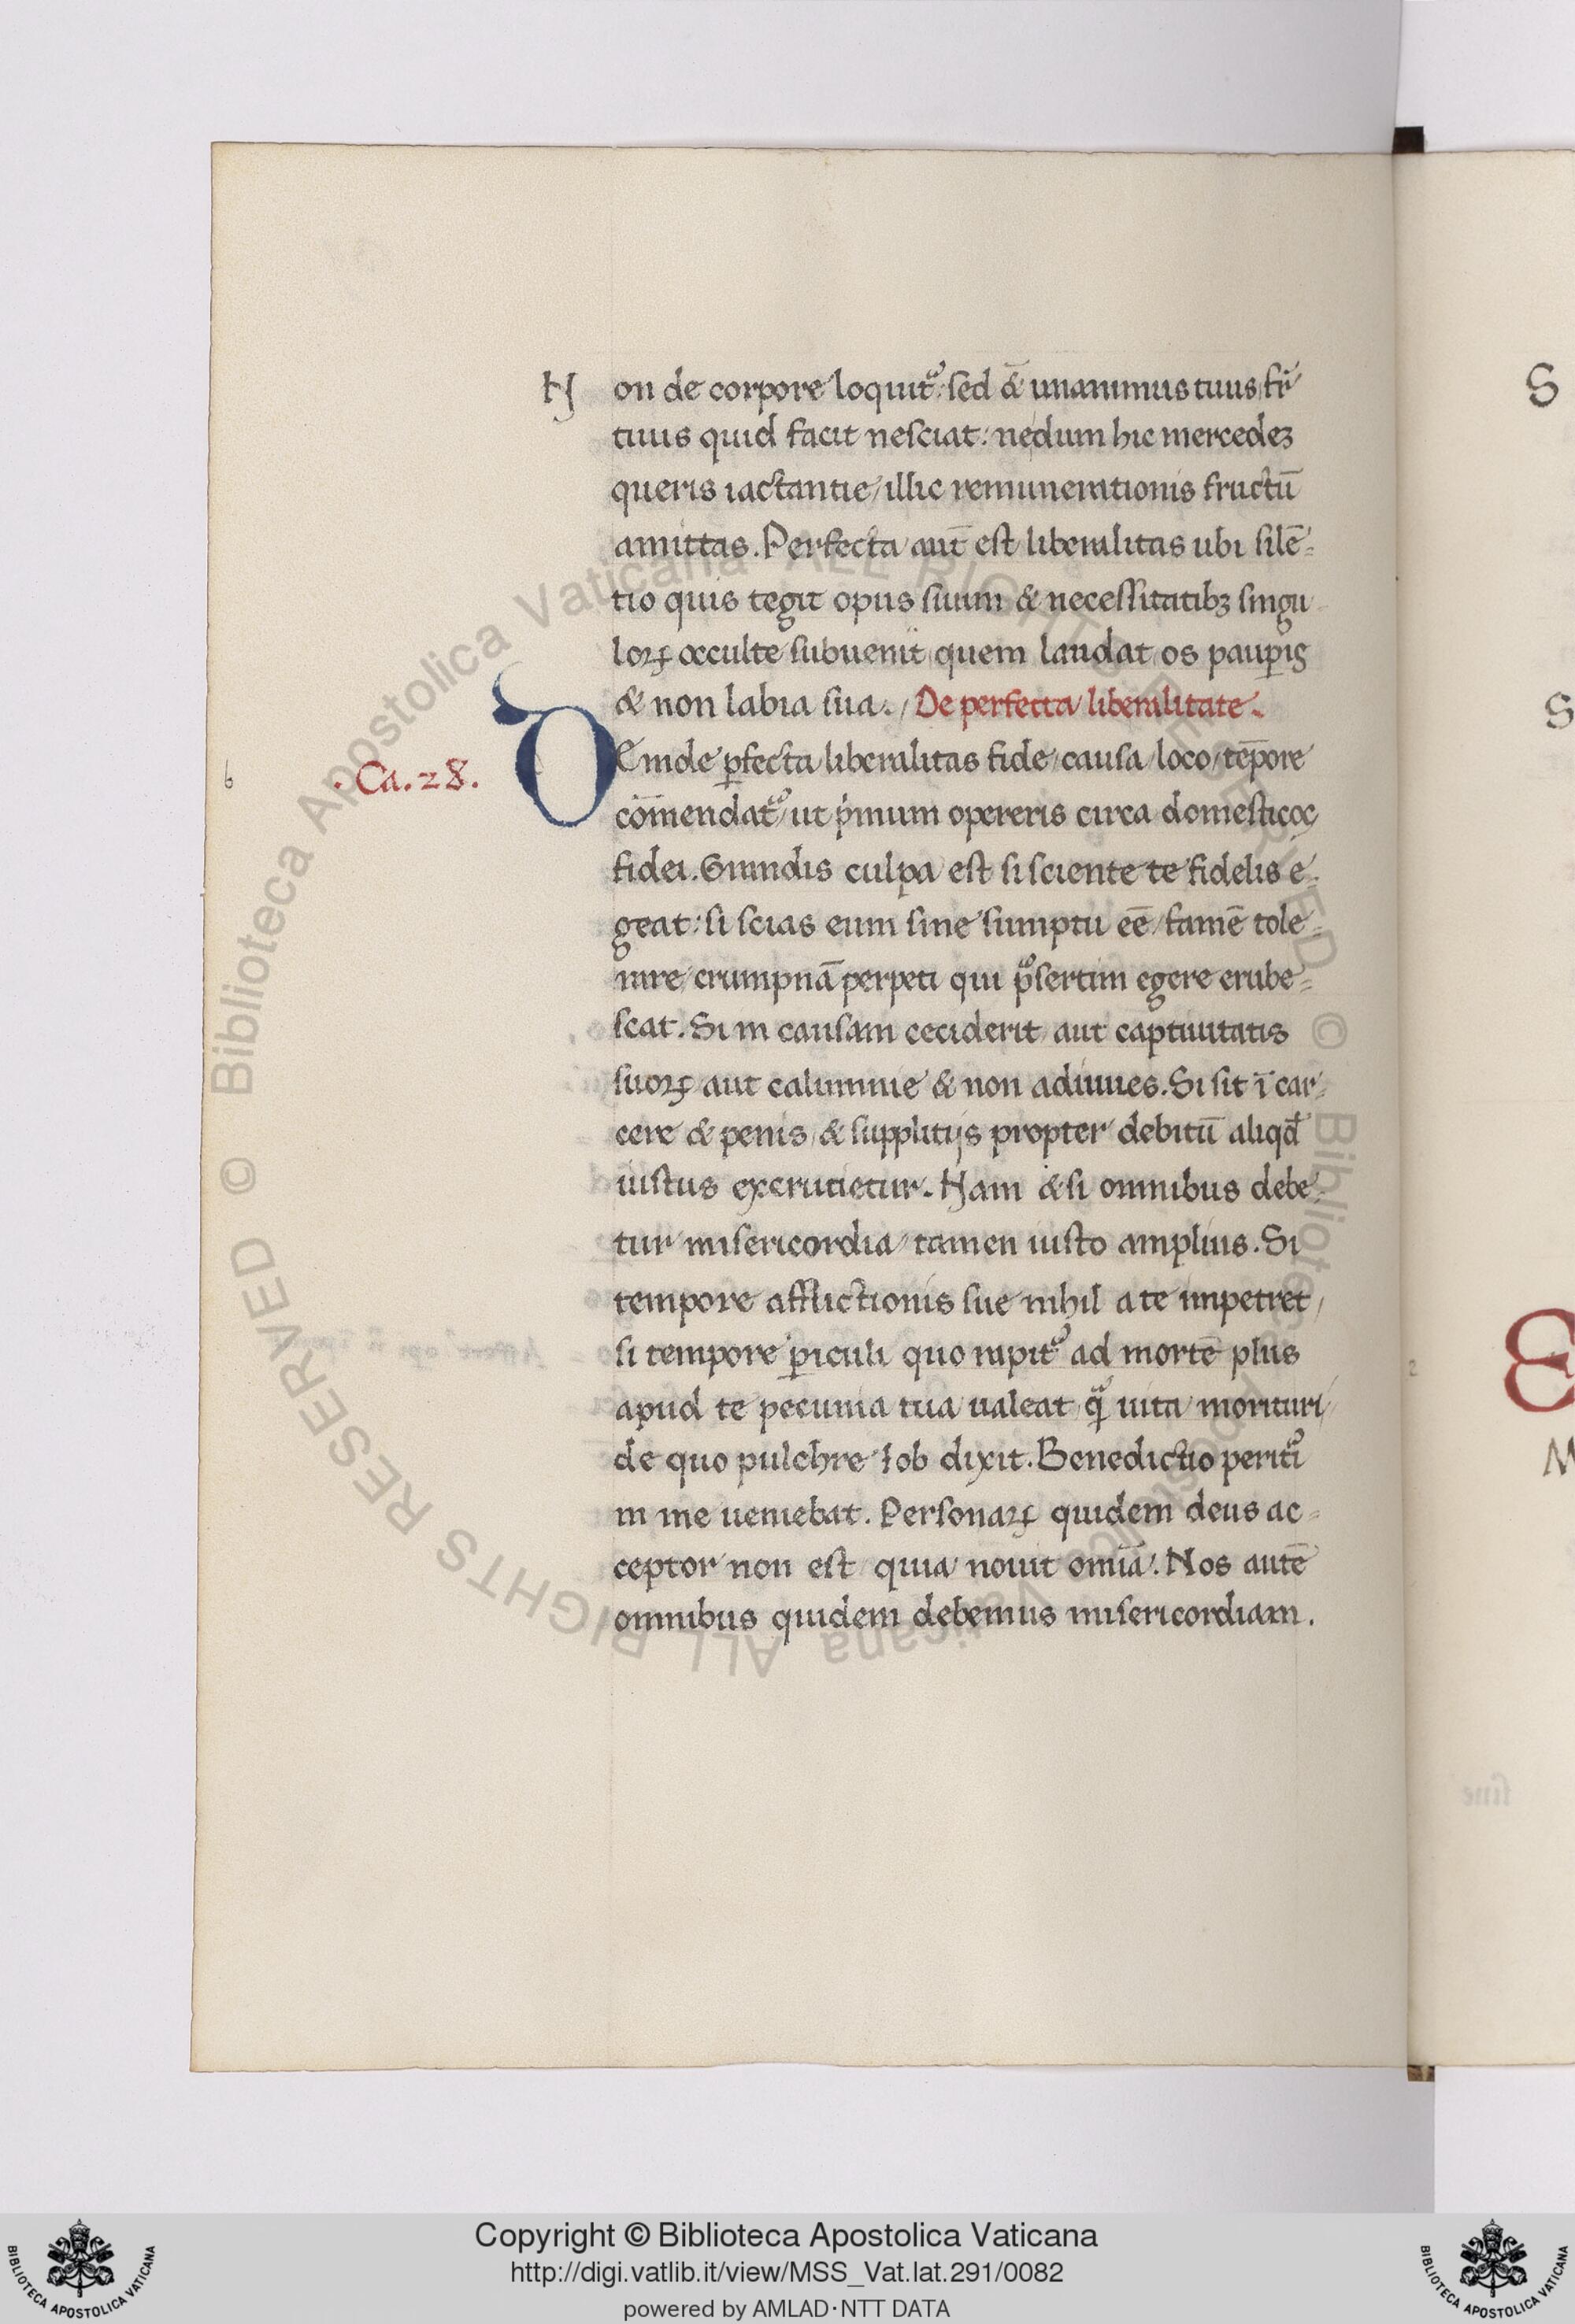 Non de corpore loquit᷑: sed & unanimus tuus fr̄
tuus quid facit nesciat: nedum hic mercedeʒ
queris iactantie/ illic remunerationis fructū
amittas. Perfecta aūt est liberalitas ubi silē-
tio quis tegit opus suum & necessitatibʒ singu
loꝝ occulte subuenit quem laudat os paup̱is
& non labia sua. De perfecta liberalitate.
·Ca. 28.
DEinde ꝑfecta liberalitas fide/ causa/ loco/ tēpore
cōmendat᷑/ ut pͥmum opereris circa domesticos
fidei. Grandis culpa est si sciente te fidelis e-
geat: si scias eum sine sumptu eē/ famē tole-
rare/ erumpnā perpeti qui p̄sertim egere erube-
scat. Si in causam ceciderit aut captiuitatis
suoꝝ aut calumnie & non adiuues. Si sit ī car-
cere & penis & supplitijs propter debitū aliqd̄
iustus excrucietur. Nam & si omnibus debe-
tur misericordia/ tamen iusto amplius. Si
tempore afflictionis sue nihil a te impetret/
si tempore ꝑiculi quo rapit᷑ ad mortē plus
apud te pecunia tua ualeat q̄ȝ uita morituri/
de quo pulchre Iob dixit. Benedictio perit᷑i
in me ueniebat. Personaꝝ quidem deus ac-
ceptor non est quia nouit omīa. Nos autē
omnibus quidem debemus misericordiam.
b
S
S
E
M
© Biblioteca Apostolica Vaticana ALL RIGHTS RESERVED © Biblioteca Apostolica Vaticana ALL RIGHTS RESERVED
Copyright © Biblioteca Apostolica Vaticana
http://digi.vatlib.it/view/MSS_Vat.lat.291/0082
powered by AMLAD·NTT DATA
BIBLIOTECA APOSTOLICA VATICANA
BIBLIOTECA APOSTOLICA VATICANA